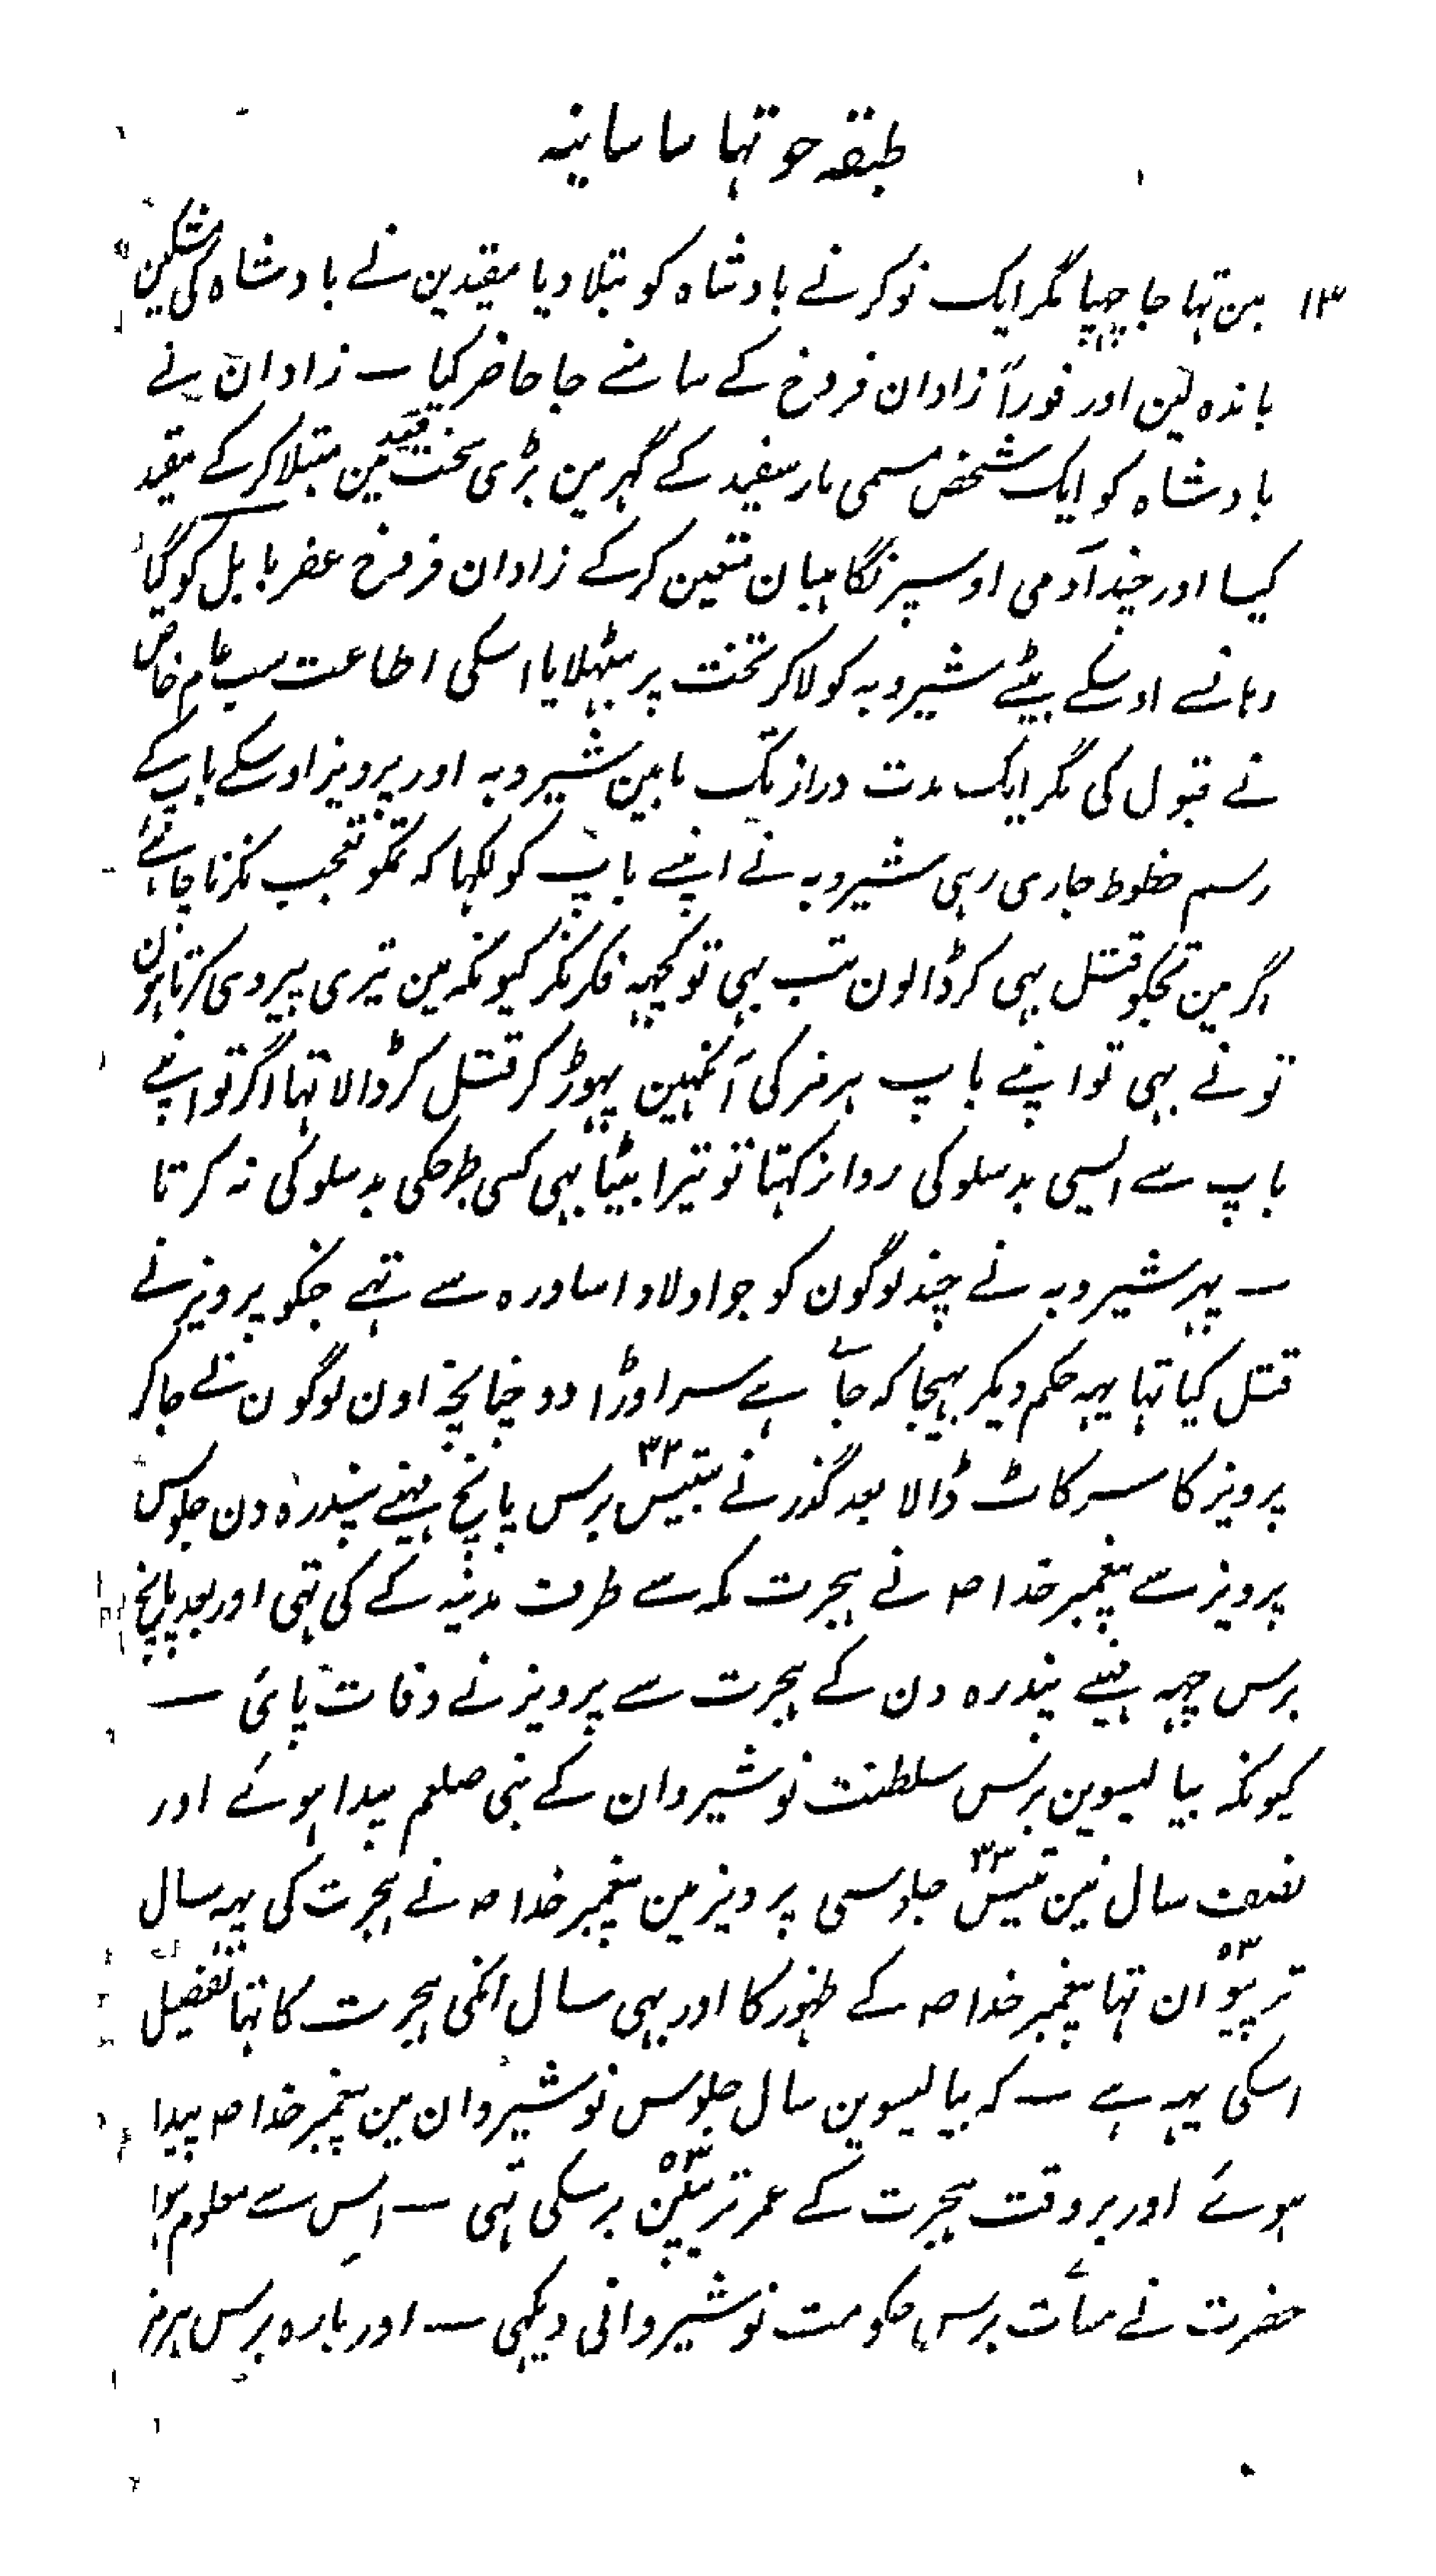 طبقہ چوتہا ساسانیہ
۱۳ مین تہا جا چہپا مگر ایک نوکر نے بادشاہ کو بتلا دیا مقیدین نے بادشاہ کی مشکین
باندہ لین اور فوراً زادان فروخ کے سامنے جا حاضر کیا — زادان نے
بادشاہ کو ایک شخص مسمی مارسفید کے گہر مین بڑی سخت قید مین مبتلا کر کے مقید
کیا اور چند آدمی اوسپر نگاہبان متعین کر کے زادان فروخ عقر بابل کو گیا
وہانسے اوسکے بیٹے شیرویہ کو لاکر تخت پر بٹہلایا اسکی اطاعت سب عام خاص
نے قبول کی مگر ایک مدت دراز تک مابین شیرویہ اور پرویز اوسکے باپ کے
رسم خطوط جاری رہی شیرویہ نے اپنے باپ کو لکہا کہ تمکو تعجب نکرنا چاہئے
اگر مین تجکو قتل بہی کر ڈالون تب بہی تو کچہہ فکر نکر کیونکہ مین تیری پیروی کرتا ہون
تونے بہی تو اپنے باپ ہرمز کی آنکہین پہوڑ کر قتل کر ڈالا تہا اگر تو اپنے
باپ سے ایسی بدسلوکی روا نرکہتا تو تیرا بیٹا بہی کسی طرحکی بدسلوکی نہ کرتا
— پہر شیرویہ نے چند لوگون کو جو اولاد اساورہ سے تہے جنکو پرویز نے
قتل کیا تہا یہہ حکم دیکر بہیجا کہ جاتے ہے سر اوڑا دو چنانچہ اون لوگون نے جا کر
پرویز کا سر کاٹ ڈالا بعد گذرنے بتیس ۳۲ برس پانچ مہینے پندرہ دن جلوس
پرویز سے پیغمبر خدا ص نے ہجرت مکہ سے طرف مدینہ کے کی تہی اور بعد پانچ
برس چہہ مہینے پندرہ دن کے ہجرت سے پرویز نے وفات پائی —
کیونکہ بیالیسوین برس سلطنت نوشیروان کے نبی صلعم پیدا ہوئے اور
نصف سال تینتیس ۳۳ جلوسی پرویز مین پیغمبر خدا ص نے ہجرت کی یہہ سال
ترپنوان ۵۳ تہا پیغمبر خدا ص کے ظہور کا اور یہی سال انکی ہجرت کا تہا تفصیل
اسکی یہہ ہے — کہ بیالیسوین سال جلوس نوشیروان مین پیغمبر خدا ص پیدا
ہوئے اور بروقت ہجرت کے عمر ترپن ۵۳ برسکی تہی — اس سے معلوم ہوا
حضرت نے سات برس حکومت نوشیروانی دیکہی — اور بارہ برس ہرمز